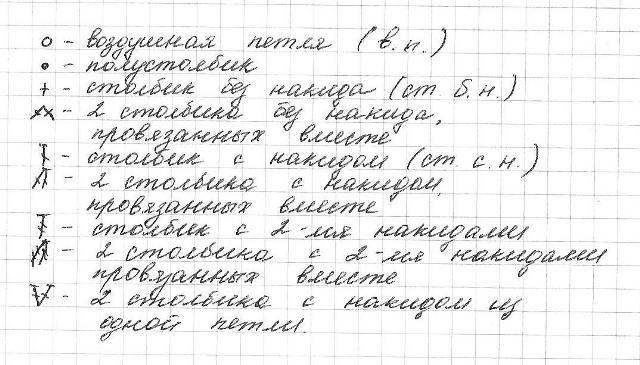 o - воздушная петля (в.п.)
• - полустолбик
+ - столбик без накида (ст. б.н.)
- 2 столбика без накида,
провязанных вместе
- столбик с накидом (ст. с.н.)
- 2 столбика с накидом,
провязанных вместе
- столбик с 2-мя накидами
- 2 столбика с 2-мя накидами
провязанных вместе
- 2 столбика с накидом из
одной петли.